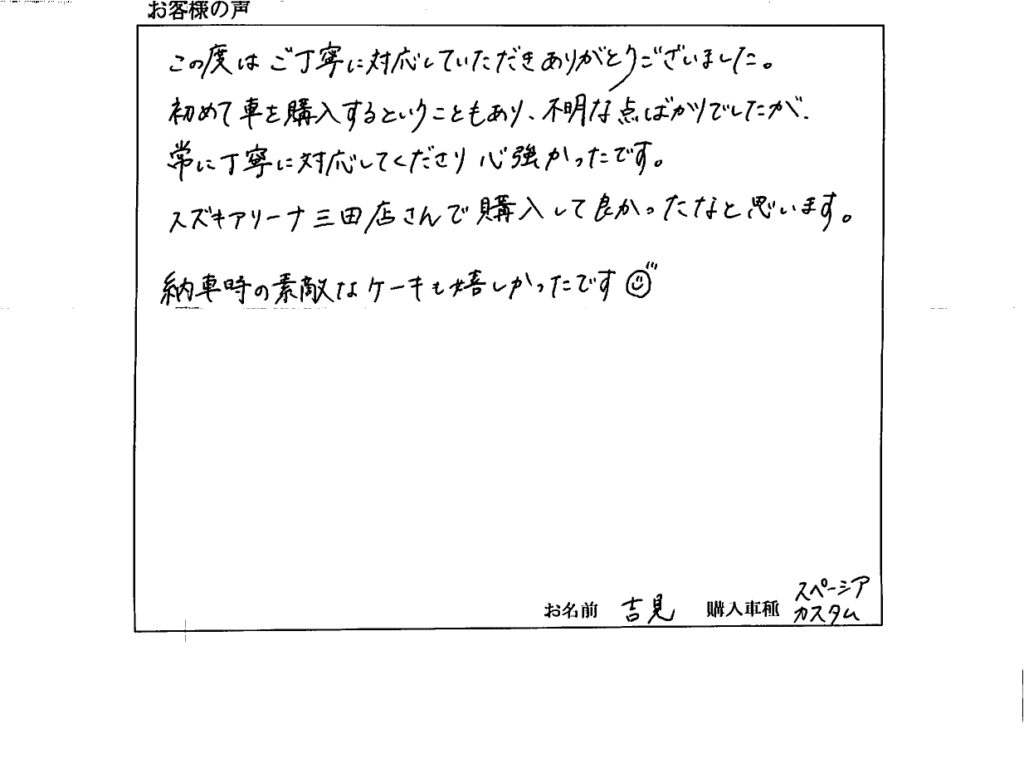 お客様の声
この度は ご丁寧に対応していただきありがとうございました。
初めて車を購入するということもあり、不明な点ばかりでしたが、
常に丁寧に対応してくださり 心強かったです。
スズキアリーナ三田店さんで購入して良かったなと思います。
納車時の素敵なケーキも嬉しかったです
お名前 吉見 購入車種 スペーシア
カスタム